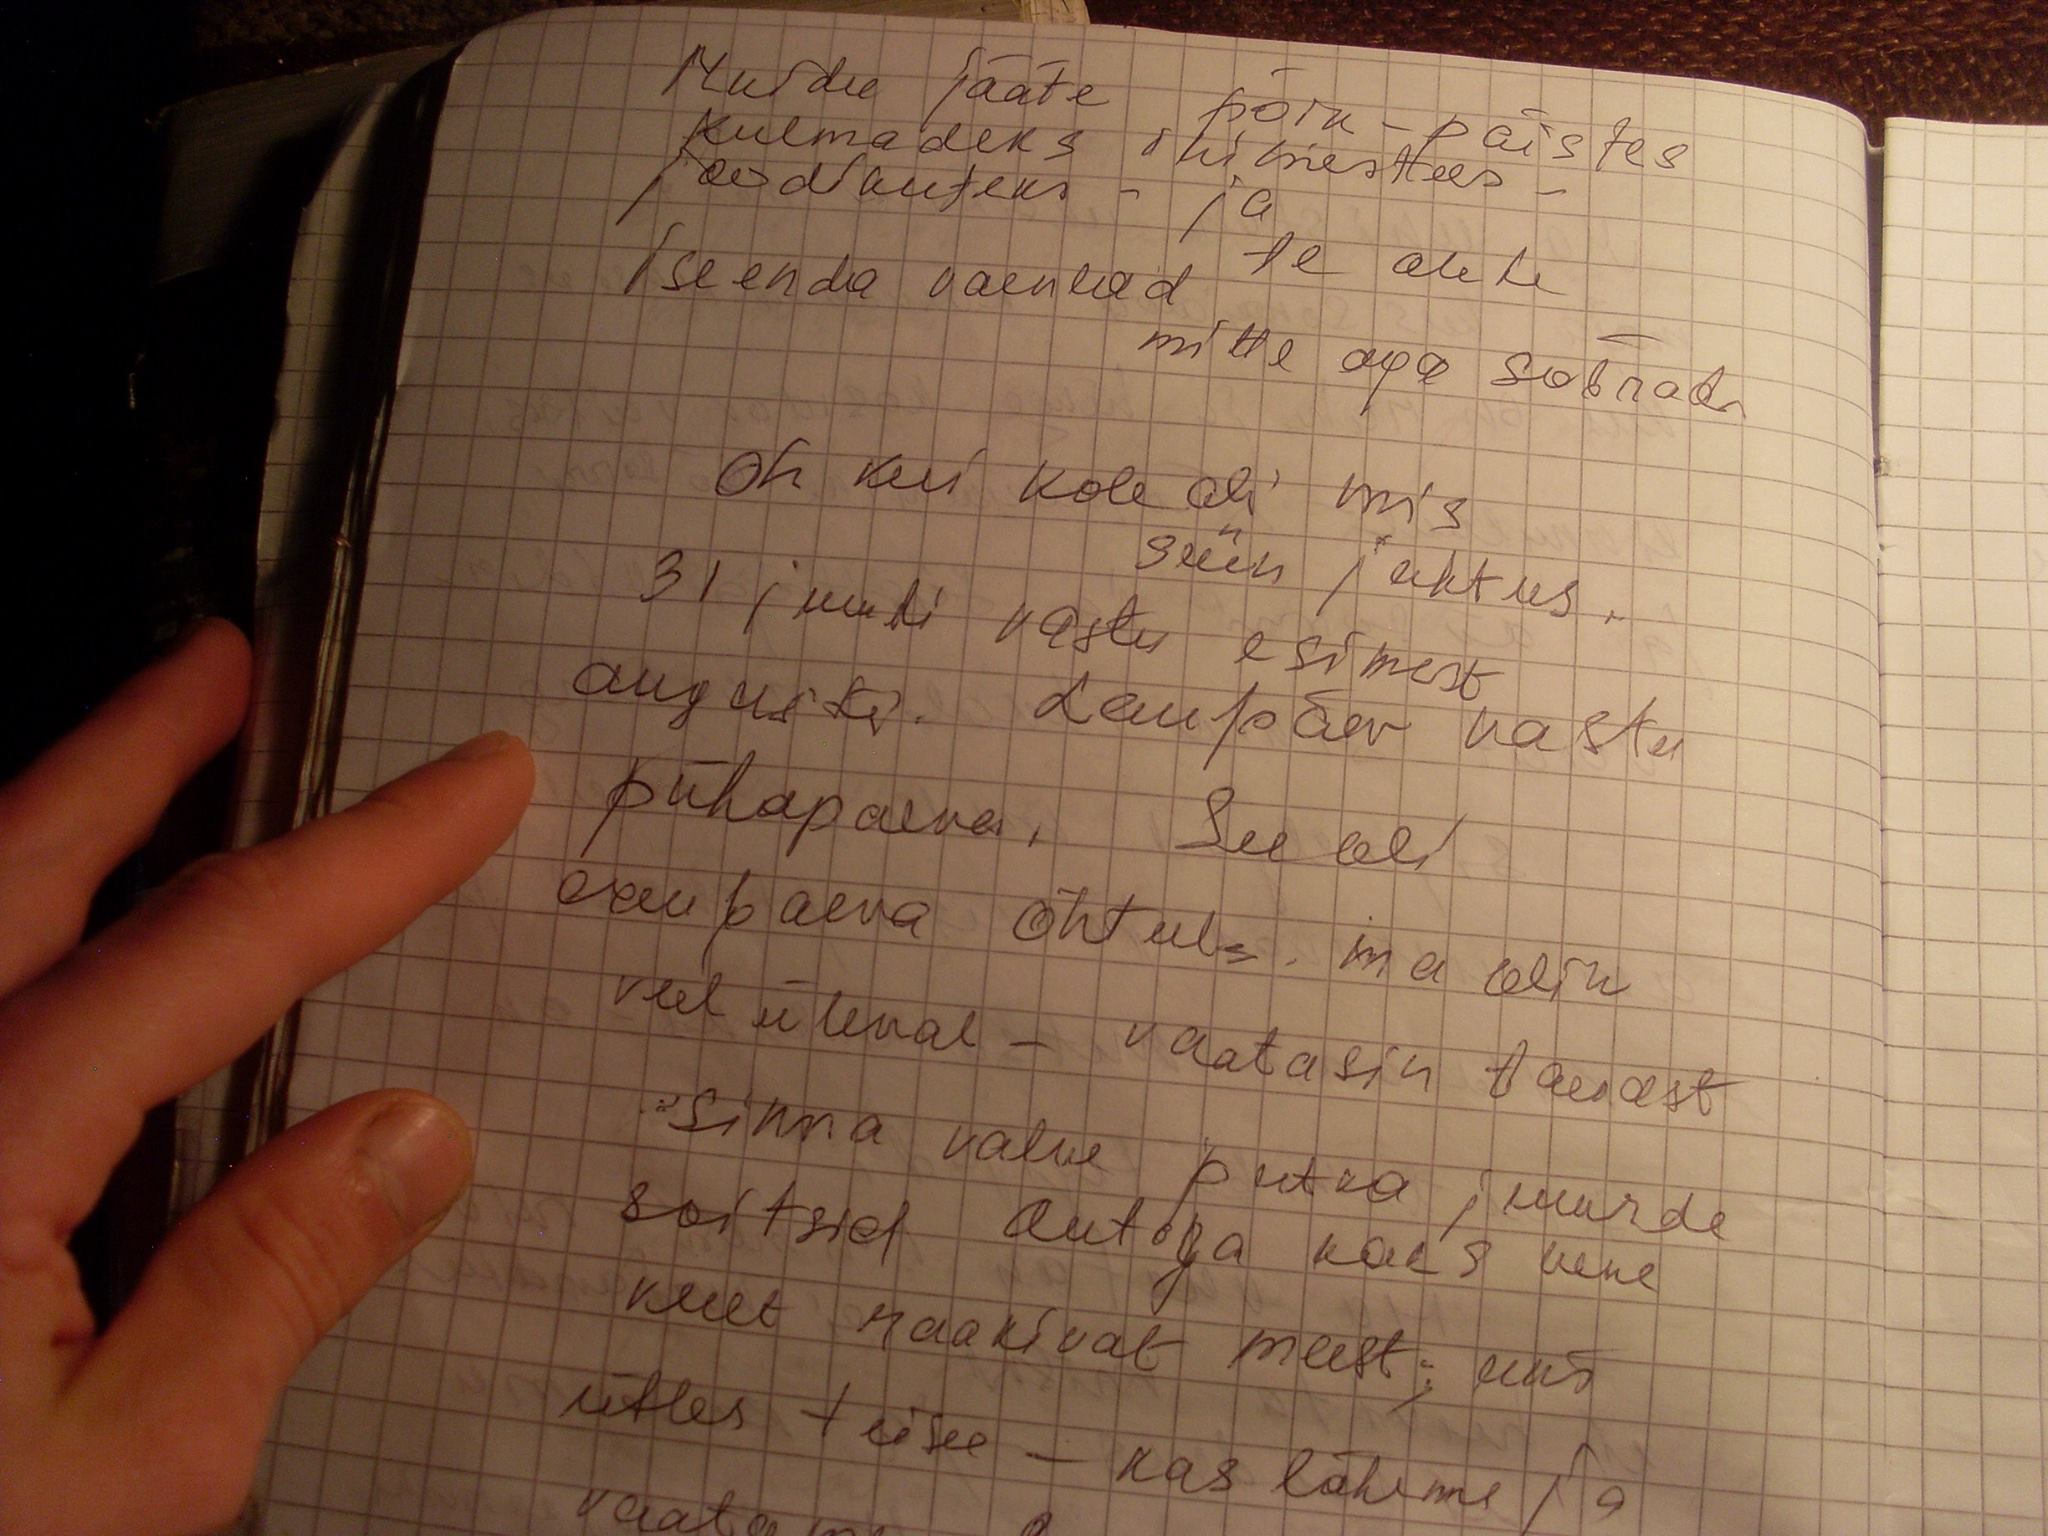 Muidu jääte põik-päistes
kulmadeks inimesttees -
joodikuteks - ja
te olete
Iseenda vaenlad
mitte aga sõbrad
Oh kui kole oli mis
siin juhtus.
31 juuli vastu esimest
augusti. Laupäev vastu
pühapaeva. See oli
laupaeva õhtul. ma olin
veel üleval - vaatasin taevast
sinna valve putka juurde
soitsid autoga kaks vene
keelt raakivat meest; üks
ütles teise - kas läheme ja